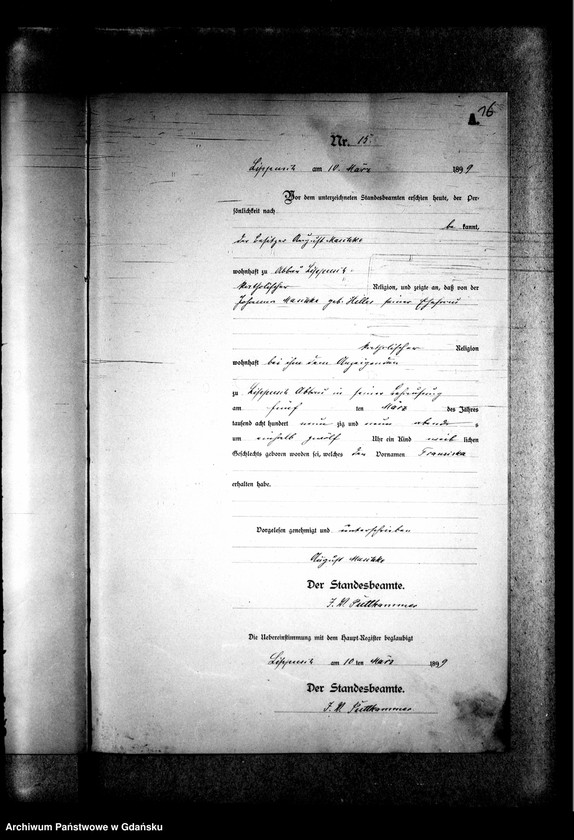 16
Nr. 15
am 10. März 1899
Vor dem unterzeichneten Standesbeamten erschien heute, der Per-
sönlichkeit nach
be kannt,
der Besitzer August
wohnhaft zu Abbau
katholischer Religion, und zeigte an, daß von der
Johanna geb. Heller seiner Ehefrau
katholischer Religion
wohnhaft bei ihm dem Anzeigenden
zu Abbau in seiner Behausung
am fünf ten März des Jahres
tausend acht hundert neun zig und neun abends
um einhalb zwölf Uhr ein Kind weib lichen
Geschlechts geboren worden sei, welches den Vornamen Franziska
erhalten habe.
Vorgelesen genehmigt und unterschrieben
August
Der Standesbeamte.
Puttkammer
Die Uebereinstimmung mit dem Haupt-Register beglaubigt
am 10 ten März 1899
Der Standesbeamte.
Puttkammer
Archiwum Państwowe w Gdańsku